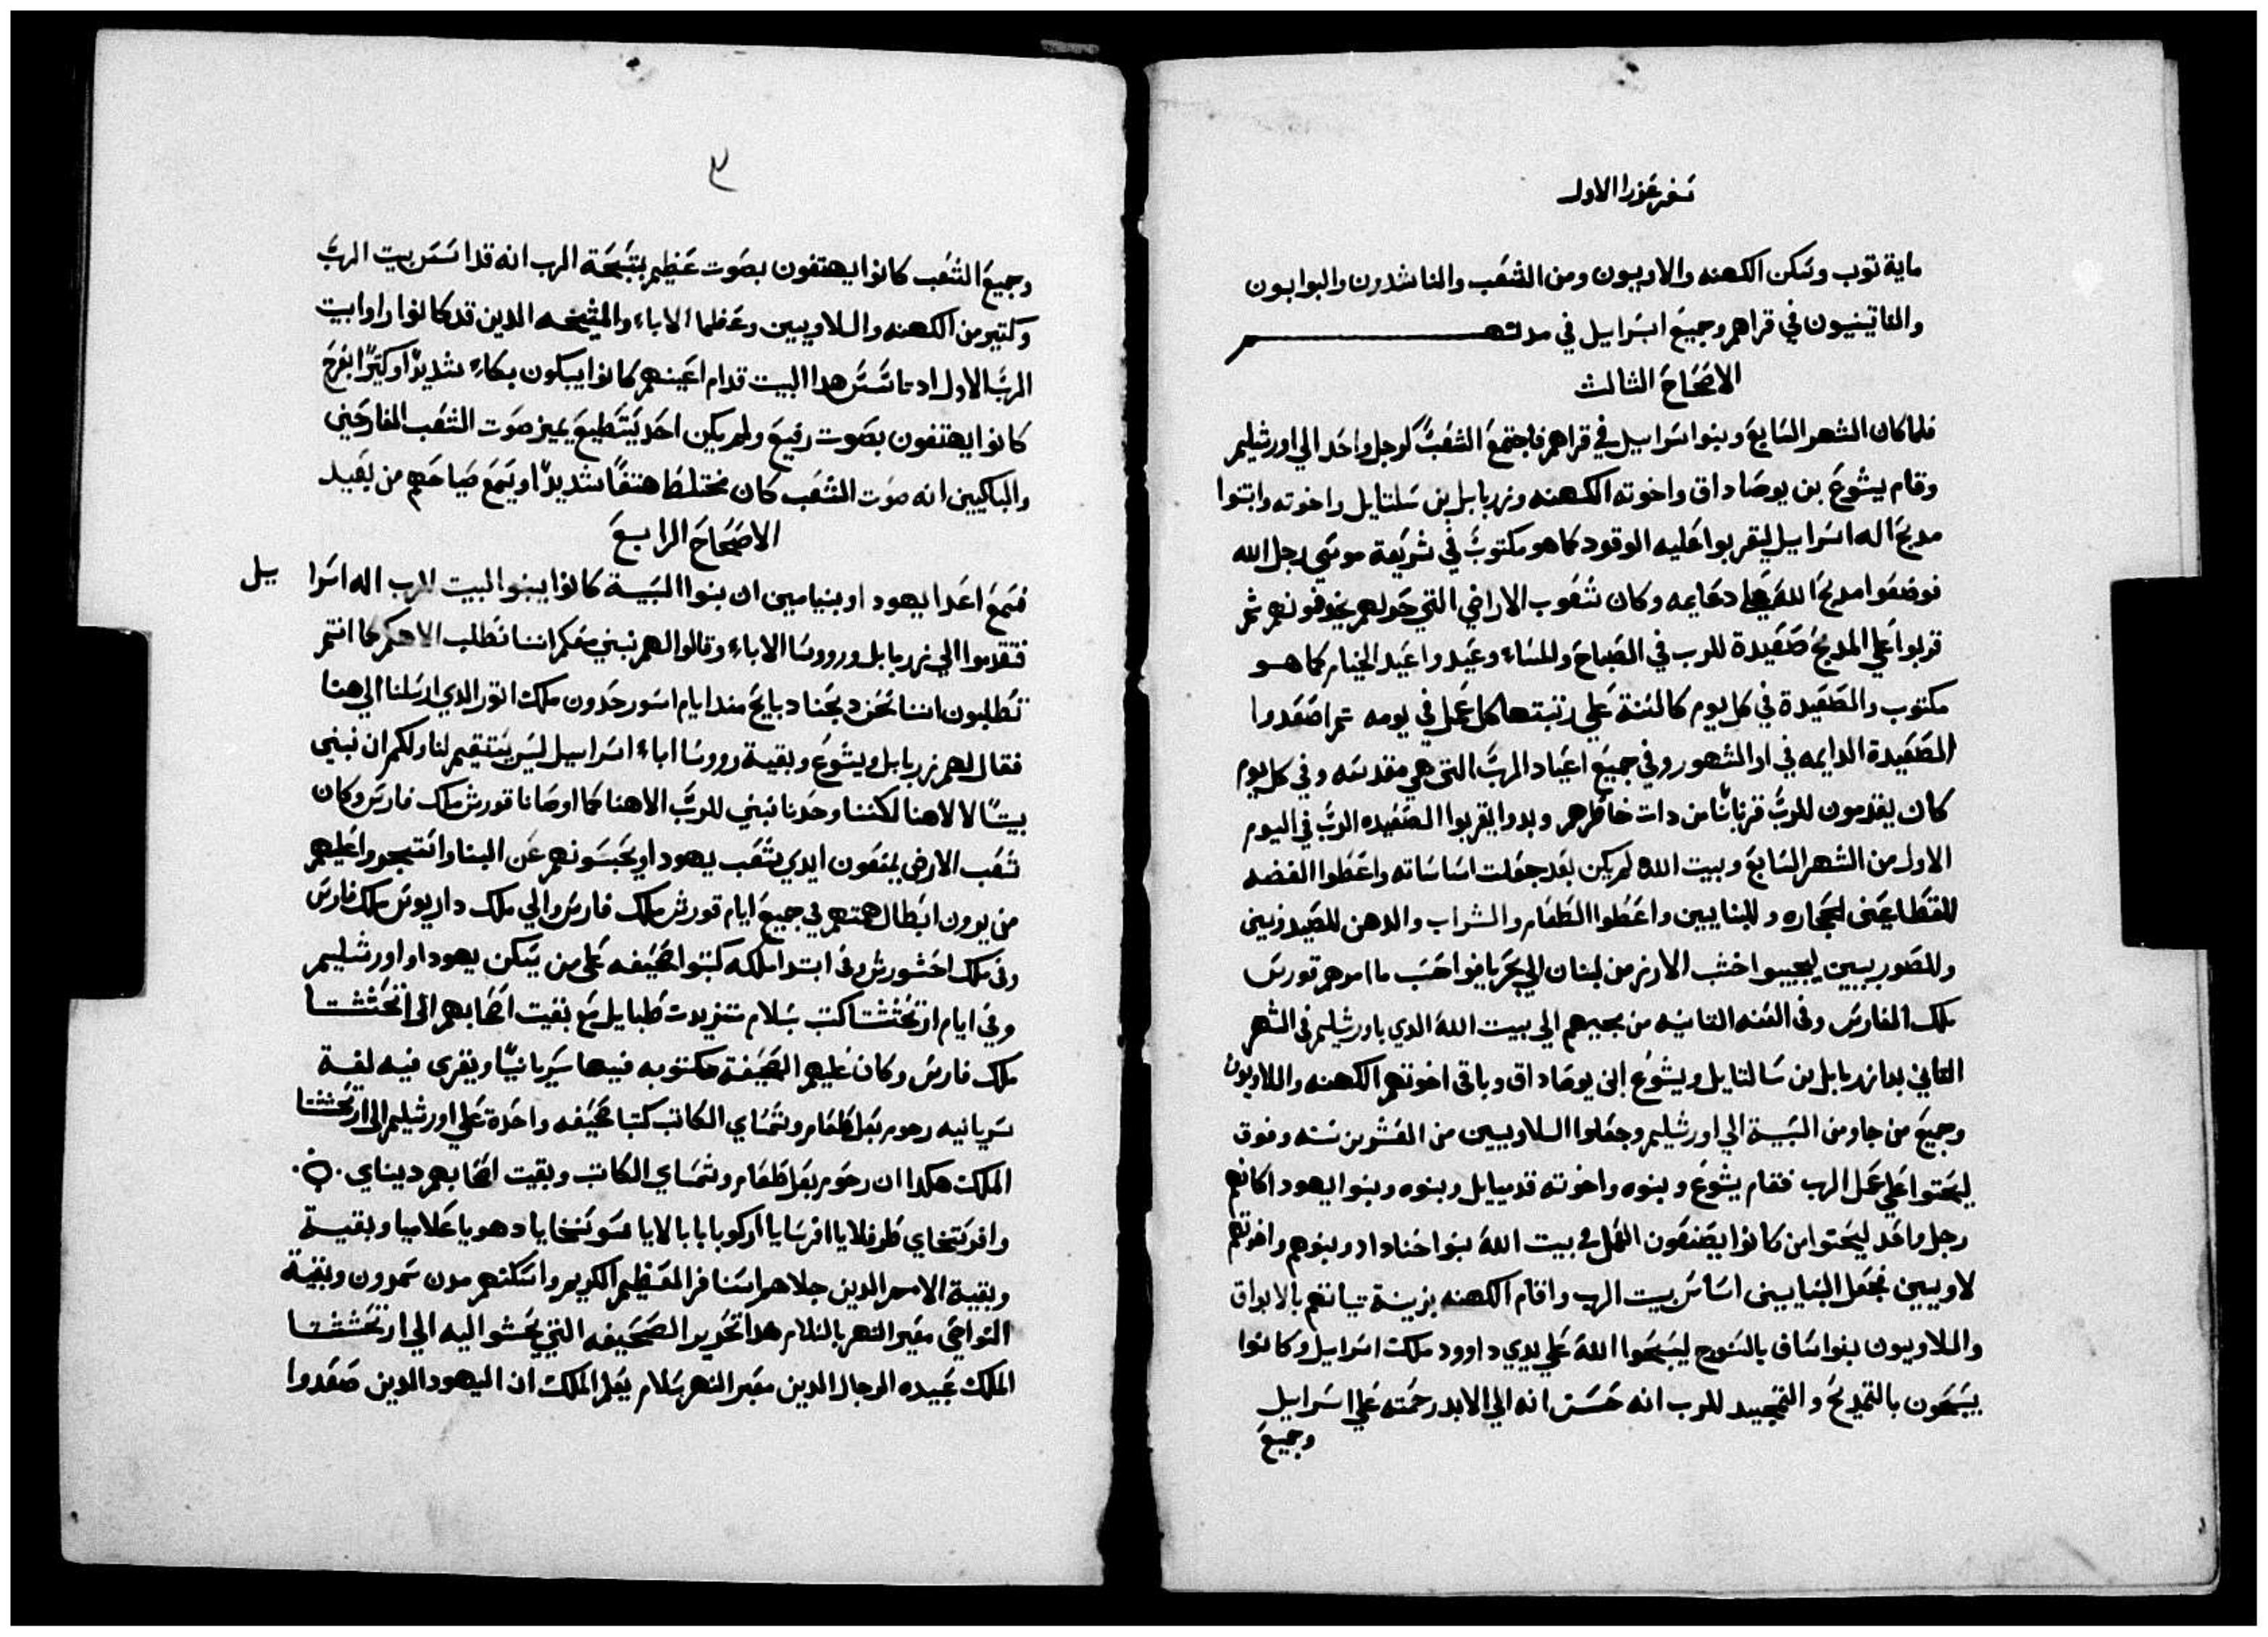 سفر عزرا الاول
ماية توب وسكن الكهنه والاويون ومن الشعب والناشدون والبوابون
والناتينيون في قراهم وجميع اسرايل في مدنهم
الاصحاح الثالث
فلما كان الشهر السابع وبنوا اسرايل في قراهم فاجتمع الشعب كرجل واحد الي اورشليم
وقام يشوع بن يوصاداق واخوته الكهنه وزربابل بن سلتايل واخوته وابتنوا
مدبح اله اسرايل ليقربوا عليه الوقود كما هو مكتوب في شريعة موسي رجل الله
فوضعوا مدبح الله علي دعايمه وكان شعوب الاراضي التي حولهم يخوفونهم ثم
قربوا علي المدبح صعيدة للرب في الصباح والمساء وعيدوا عيد الخيام كما هو
مكتوب والصعيدة في كل يوم كالسنة علي رتبتها كل عمل في يومه تم اصعدوا
الصعيدة الدايمه في اد الشهور وفي جميع اعياد الرب التي هي مقدسه وفي كل يوم
كان يقدمون للرب قربانا من دات خاطرهم وبدوا يقربوا الصعيده الرب في اليوم
الاول من الشهر السابع وبيت الله لم يكن بعد جعلت اساساته واعطوا الفضه
للقطاعين الحجاره وللبنايين واعطوا الطعام والشراب والدهن للصيدونيين
وللصوريين ليجيبوا خشب الارز من لبنان الي بحر يافوا حسب ما امرهم قورس
ملك الفارس وفي السنه التانيه من مجيهم الي بيت الله الدي باورشليم في الشهر
التاني بدا زربابل بن سالتايل ويشوع ابن يوصاداق وباقي اخوتهم الكهنه واللاويون
وجميع من جاو من السبية الي اورشليم وجعلوا اللاويين من العشرين سنه وفوق
ليحتوا علي عمل الرب فقام يشوع وبنوه واخوته قدميايل وبنوه وبنوا يهودا كانهم
رجل واحد ليحتوا من كانوا يصنعون العمل في بيت الله بنوا حناداد وبنوهم واخوتهم
لاويين فجعل البنايين اساس بيت الرب واقام الكهنه بزينة تيابهم بالابواق
واللاويون بنوا ساف بالسنوج ليسبحوا الله علي يدي داوود ملك اسرايل وكانوا
يسبحون بالتمديح والتمجيد للرب انه حسن انه الي الابد رحمته علي اسرايل
وجميع
٣
وجميع الشعب كانوا يهتفون بصوت عظيم بتسبحة الرب انه قد اسس بيت الرب
وكتير من الكهنه واللاويين وعظما الاباء والمشيخه الدين قد كانوا راوا بيت
الرب الاول اد تاسس هدا البيت قدام اعينهم كانوا يبكون بكاء شديدا وكتيرا بفرح
كانوا يهتفون بصوت رفيع ولم يكن احد يستطيع يميز صوت الشعب الفارحين
والباكيين انه صوت الشعب كان مختلط هتفا شديدا ويسمع صياحهم من بعيد
الاصحاح الرابع
فسمع اعدا يهودا وبنيامين ان بنوا السبية كانوا يبنوا البيت للرب اله اسرايل
فتقدموا الي زربابل ورووسا الاباء وقالوا لهم نبني معكم اننا نطلب الاهكم كما انتم
تطلبون اننا نحن دبحنا دبايح مند ايام اسورحدون ملك اتور الدي ارسلنا الي هنا
فقال لهم زربابل ويشوع وبقية رووسا اباء اسرايل ليس يستقيم لنا ولكم ان نبني
بيتا لالاهنا لكننا وحدنا نبني للرب الاهنا كما اوصانا قورش ملك فارس وكان
شعب الارض يمنعون ايدي شعب يهودا ويحبسونهم عن البنا واستجروا عليهم
من يرون ابطال همتهم في جميع ايام قورش ملك فارس والي ملك داريوس ملك فارس
وفي ملك احشورش وفي ابتدا ملكه كتبوا صحيفه علي من يسكن يهودا واورشليم
وفي ايام ارتحشتا كتب بسلام متريدت طبايل مع بقيت اصحابهم الي ارتحشتا
ملك فارس وكان عليهم الصحيفة مكتوبه فيها سريانيا ويقري فيه لغة
سريانيه رحوم بعل طعام وشمساي الكاتب كتبا صحيفه واحدة علي اورشليم الي ارتحشتا
الملك هكدا ان رحوم بعل طعام وشمساي الكاتب وبقيت اصحابهم ديناي
وافرستخاي طرفلايا افرسايا اركوبا بابالايا سوسنخايا دهويا علاميا وبقية
وبقية الامم الدين جلاهم اسنافر العظيم الكريم واسكنهم مدن سمرون وبقية
النواحي معبر النهر بالسلام هدا تحرير الصحيفه التي بحشوا اليه الي ارتحشتا
الملك عبيده الرجال الدين معبر النهر سلام يعلم الملك ان اليهود الدين صعدوا